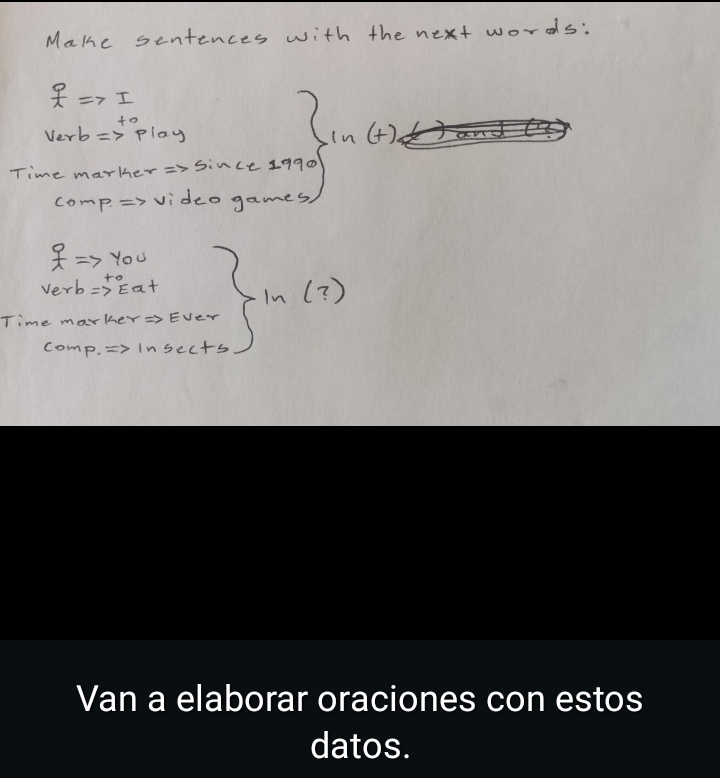 Make sentences with the next words:
=> I
verb => to Play
Time marker => Since 1990
comp. => video games
In (+)
=> You
verb => to Eat
Time marker => Ever
comp. => Insects
In (?)
Van a elaborar oraciones con estos
datos.